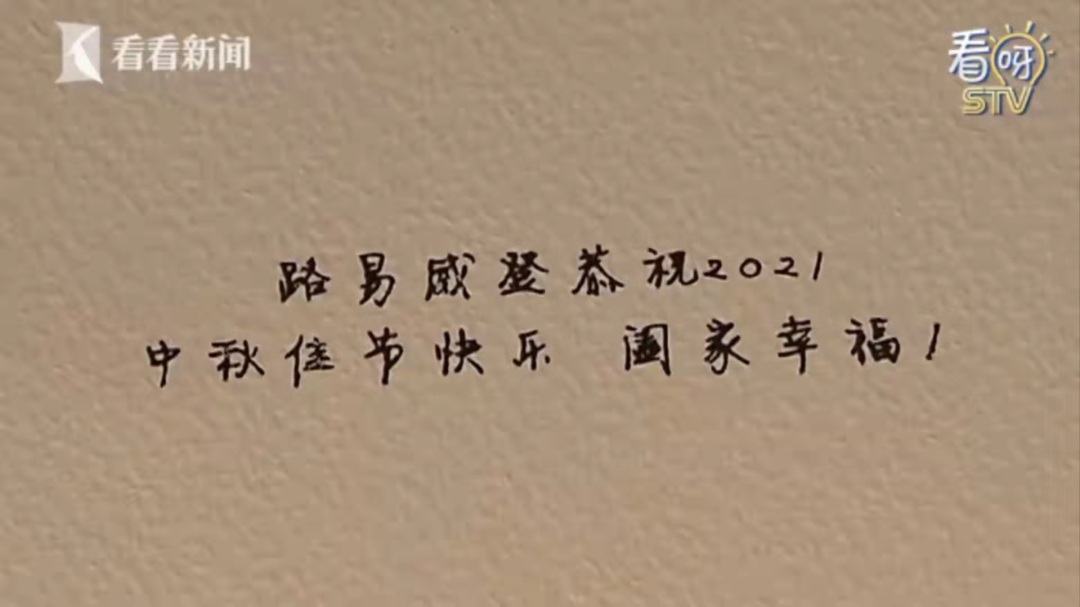 看看新闻
看呀
STV
路易威登恭祝2021
中秋佳节快乐 阖家幸福！